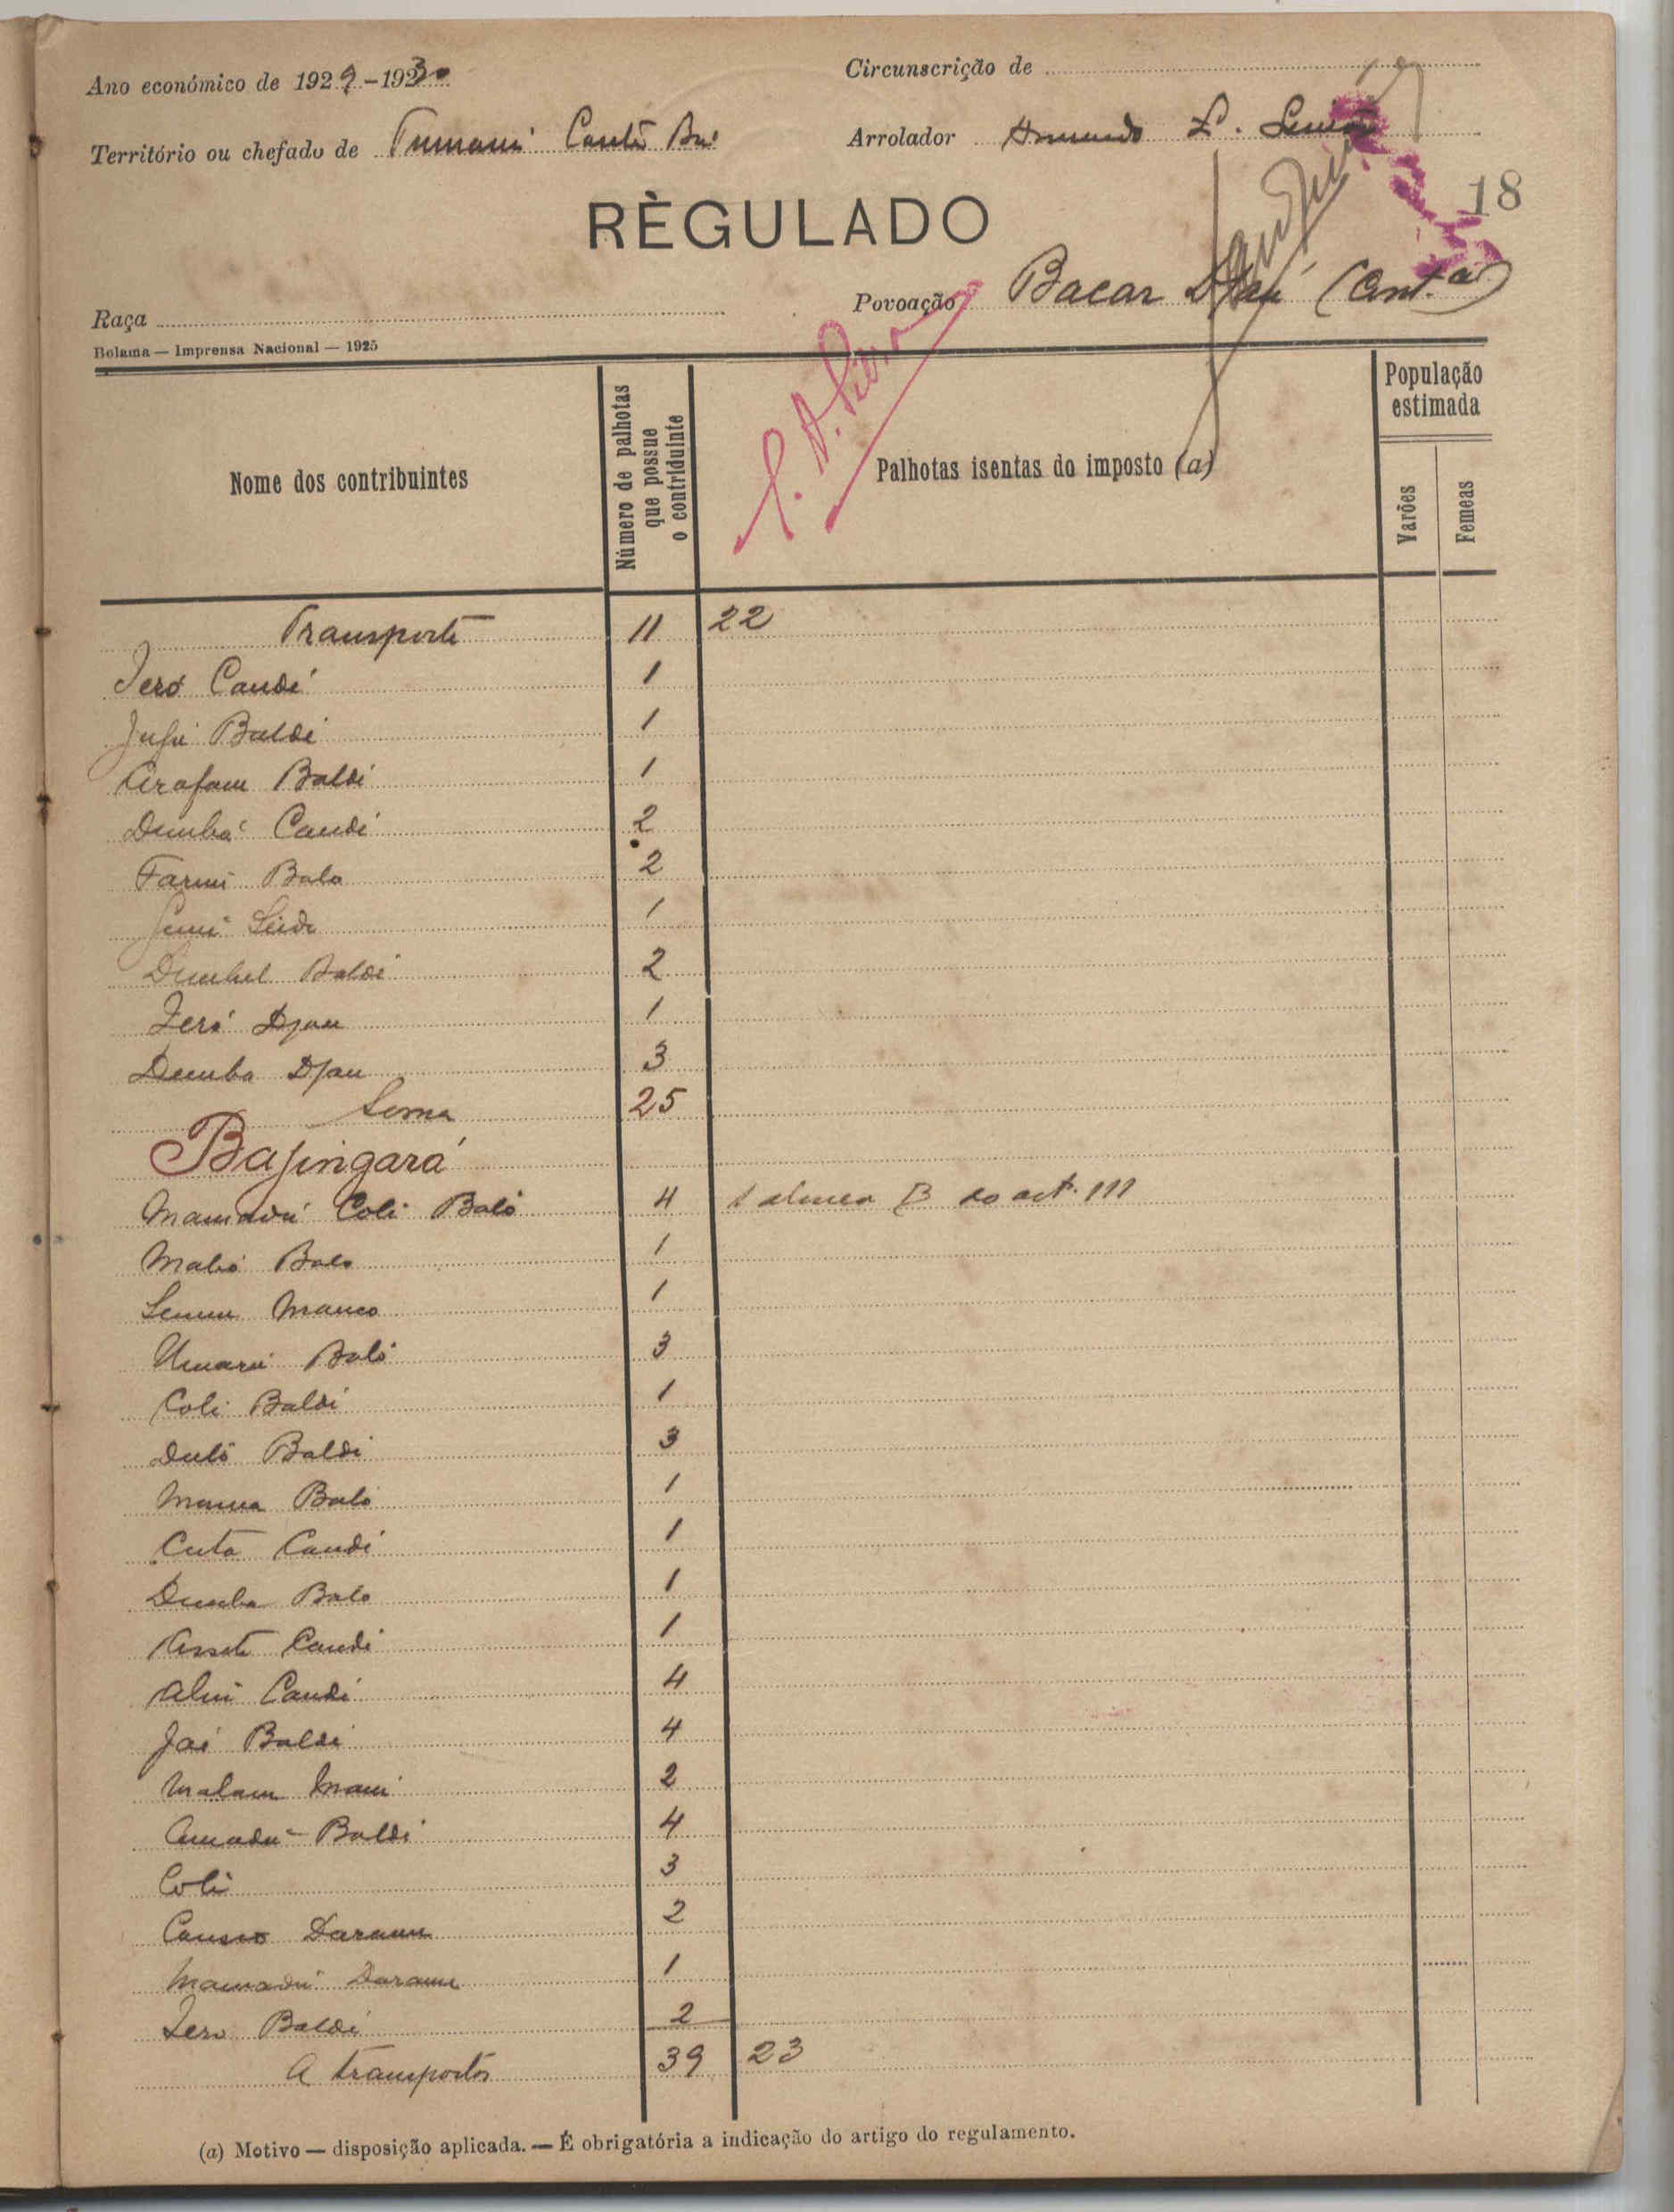 Ano económico de 1929-1930
Circunscrição de
Território ou chefado de Tumané Canté Bu
Arrolador Armando L.
18
RÈGULADO
Raça
Povoação Bacar Djau (Cont.a)
Bolama — Imprensa Nacional — 1925
Nome dos contribuintes
Número de palhotas que possue o contriduinte
Palhotas isentas do imposto (a)
População estimada
Varões
Femeas
Transporte 11 22
Jeró Candé 1
Baldé 1
Arafam Baldé 1
Dembá Candé 2
Farim Balo 2
Seidi 1
Baldé 2
Jeró Djau 1
Demba Djau 3
Soma 25
Bajingará
Mamadú Coli Baló 4 1 alinea B do art. 111
Balo 1
Manco 1
Umarú Baló 3
Coli Baldé 1
Duló Baldé 3
Baló 1
Cuta Candé 1
Demba Balo 1
Candé 1
Candé 4
Baldé 4
Malam Mané 2
Amadú Baldé 4
Coli 3
2
Mamadú 1
Jero Baldé 2
A transportar 39 23
(a) Motivo — disposição aplicada. — É obrigatória a indicação do artigo do regulamento.